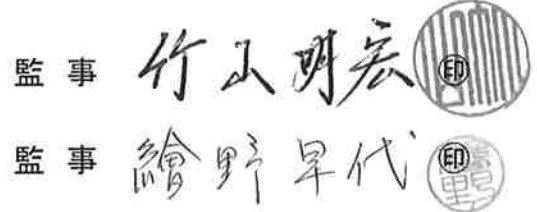 監事 竹山明宏 ㊞
監事 繪野早代 ㊞